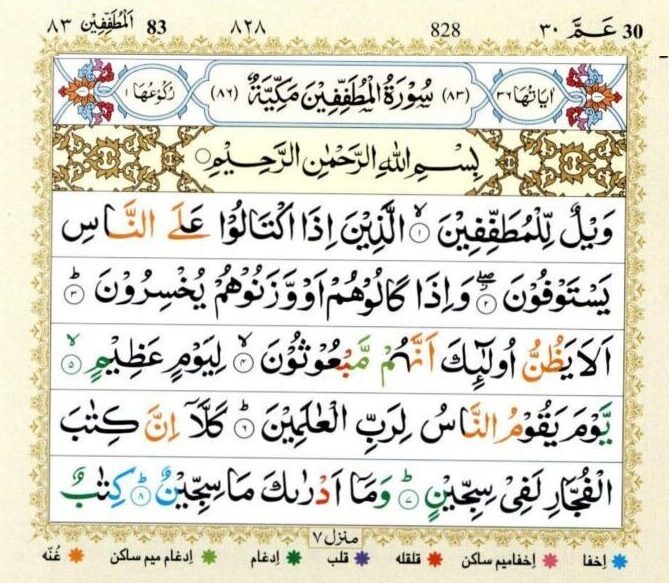 اَلْمُطَفِّفِيْن ٨٣ 83 ٨٢٨ 828 عَـمَّ ٣٠ 30
اٰيَاتُهَا ٣٦ (٨٣) سُوْرَةُ الْمُطَفِّفِيْنَ مَكِّيَّةٌ (٨٦) رُكُوْعُهَا ١
بِسْمِ اللّٰهِ الرَّحْمٰنِ الرَّحِيْمِ
وَيْلٌ لِّلْمُطَفِّفِيْنَ ۙ﴿۱﴾ الَّذِيْنَ اِذَا اكْتَالُوْا عَلَى النَّاسِ
يَسْتَوْفُوْنَ ۖ﴿۲﴾ وَاِذَا كَالُوْهُمْ اَوْ وَّزَنُوْهُمْ يُخْسِرُوْنَ ؕ﴿۳﴾
اَلَا يَظُنُّ اُولٰٓئِكَ اَنَّهُمْ مَّبْعُوْثُوْنَ ۙ﴿۴﴾ لِيَوْمٍ عَظِيْمٍ ۙ﴿۵﴾
يَّوْمَ يَقُوْمُ النَّاسُ لِرَبِّ الْعٰلَمِيْنَ ؕ﴿۶﴾ كَلَّاۤ اِنَّ كِتٰبَ
الْفُجَّارِ لَفِيْ سِجِّيْنٍ ؕ﴿۷﴾ وَمَاۤ اَدْرٰىكَ مَا سِجِّيْنٌ ؕ﴿۸﴾ كِتٰبٌ
منزل ٧
اِخفا اِخفامیم ساکن قلقله قلب اِدغام اِدغام میم ساکن غُنّه